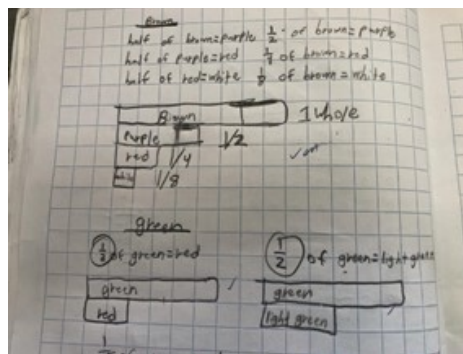 Brown
half of brown=purple 1/2 of brown=purple
half of purple=red 1/4 of brown=red
half of red=white of brown=white
Brown 1 whole
purple 1/2
red 1/4
1/8
green
of green=red 1/2 of green=light green
green green
red light green